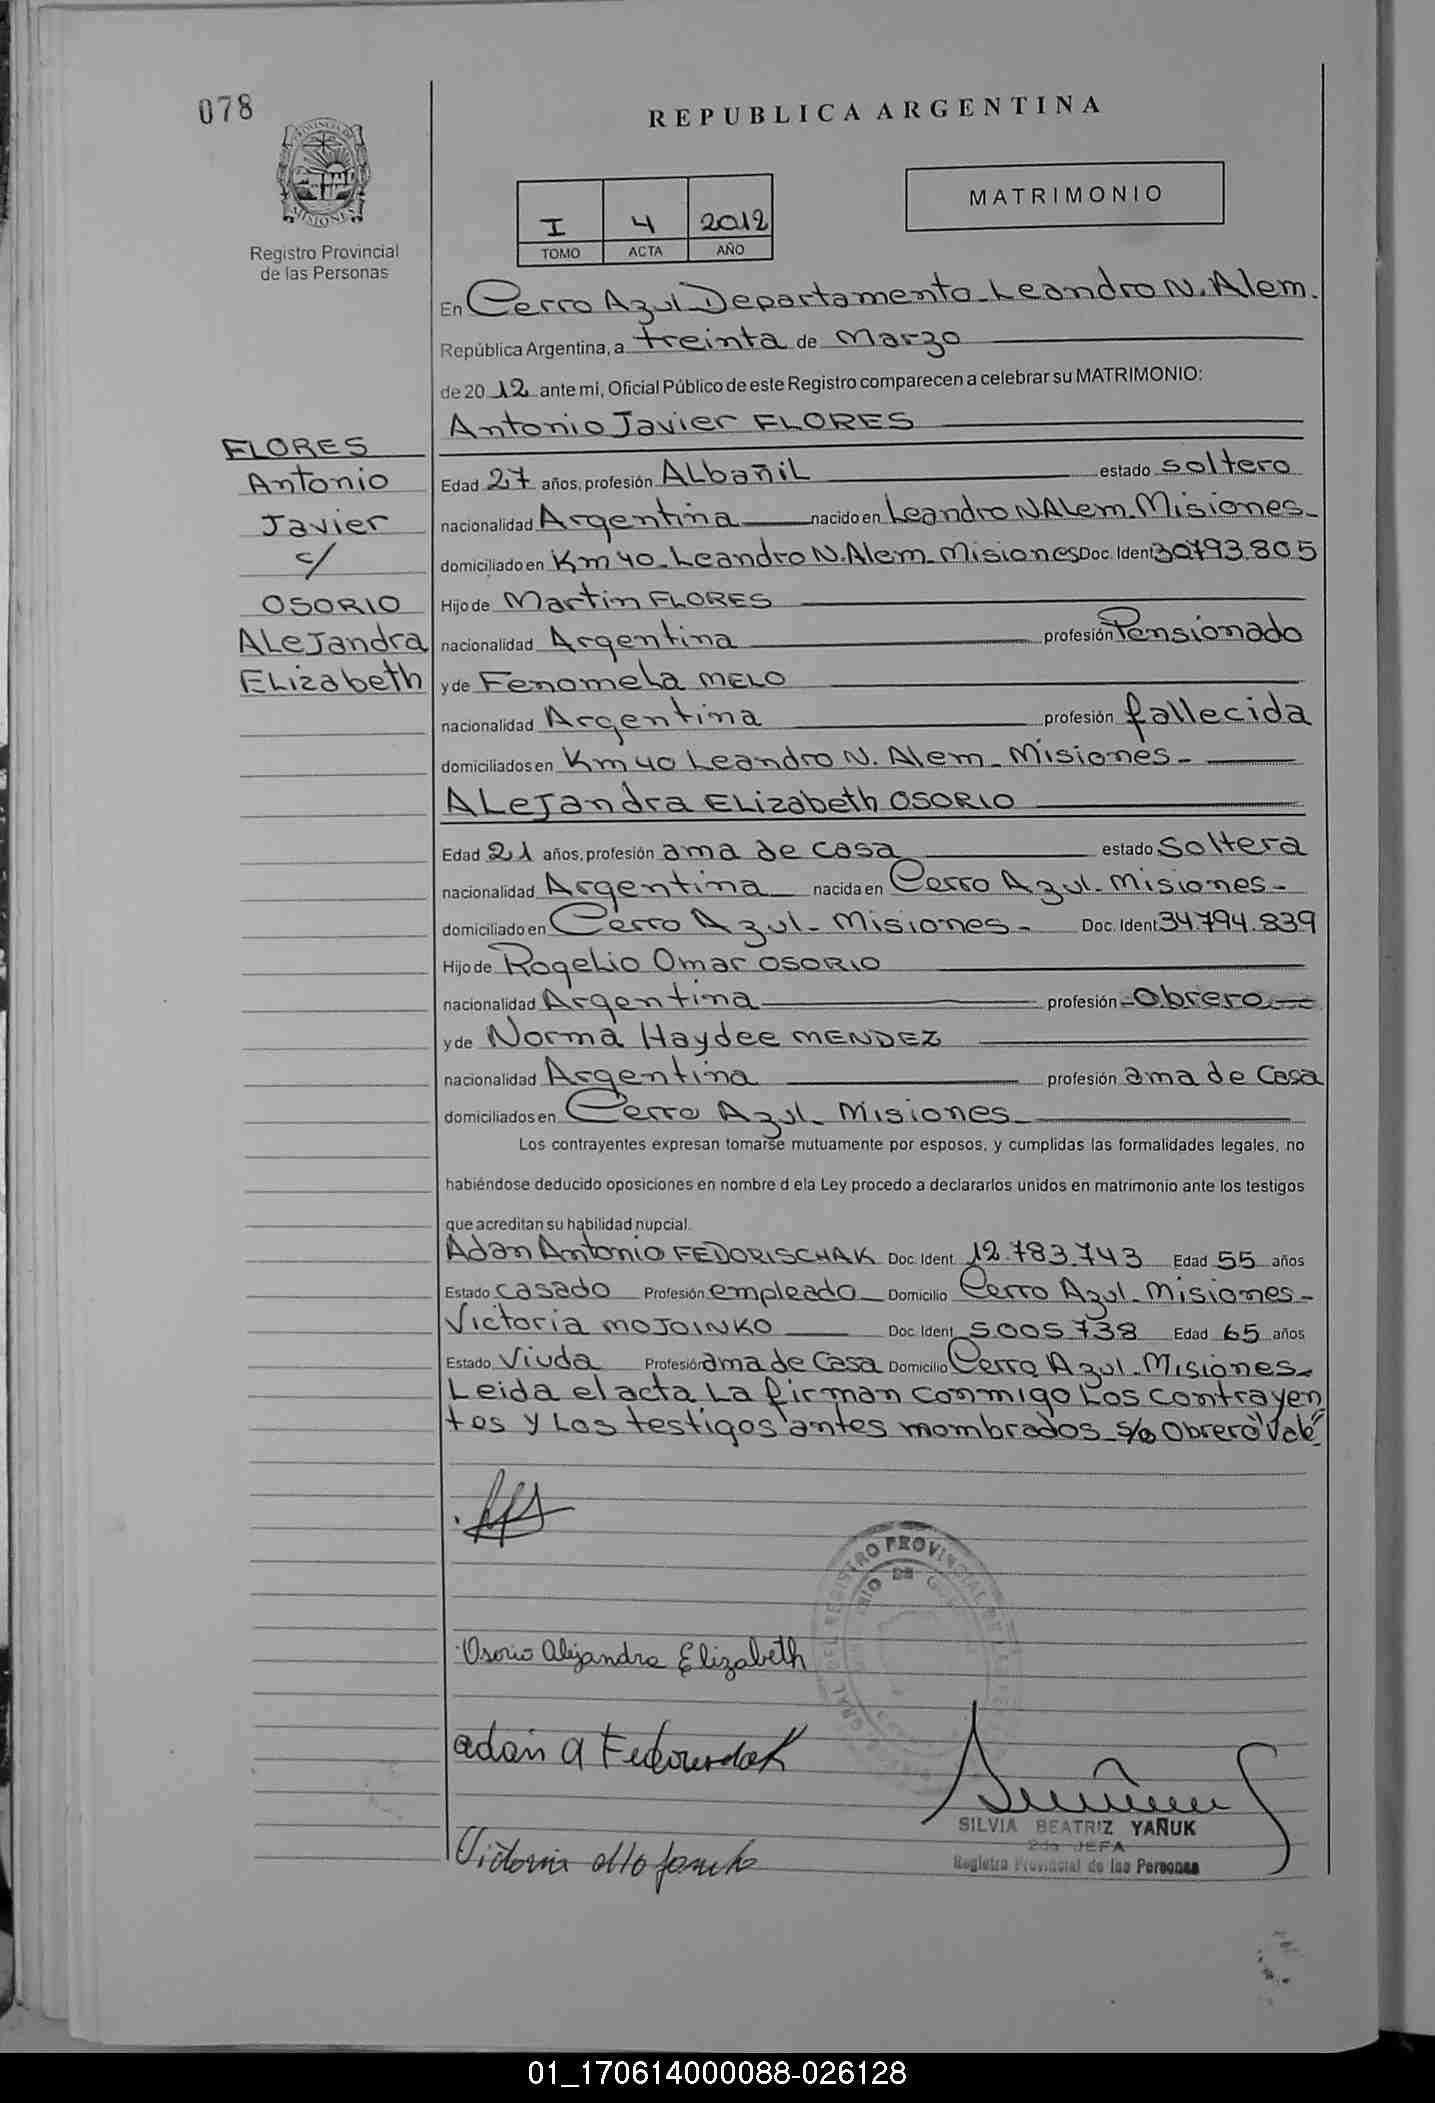 078
REPUBLICA ARGENTINA
PROVINCIA DE
MISIONES
Registro Provincial
de las Personas
I 4 2012
TOMO ACTA AÑO
MATRIMONIO
En Cerro Azul Departamento Leandro N. Alem.
República Argentina, a treinta de Marzo
de 2012 ante mi, Oficial Público de este Registro comparecen a celebrar su MATRIMONIO:
Antonio Javier FLORES
FLORES
Antonio
Javier
c/
OSORIO
ALejandra
ELizabeth
Edad 27 años, profesión ALbañiL estado soltero
nacionalidad Argentina nacido en Leandro N ALem. Misiones-
domiciliado en Km 40- Leandro N. Alem- Misiones Doc. Ident 30793.805
Hijo de Martin FLORES
nacionalidad Argentina profesión Pensionado
y de Fenomela MELO
nacionalidad Argentina profesión fallecida
domiciliados en Km 40 Leandro N. Alem- Misiones-
ALejandra ELizabeth OSORIO
Edad 21 años, profesión ama de casa estado Soltera
nacionalidad Argentina nacida en Cerro Azul- Misiones-
domiciliado en Cerro Azul- Misiones- Doc. Ident 34.794.839
Hijo de RogeLio Omar OSORIO
nacionalidad Argentina profesión -Obrero-
y de Norma Haydee MENDEZ
nacionalidad Argentina profesión ama de Casa
domiciliados en Cerro Azul- Misiones-
Los contrayentes expresan tomarse mutuamente por esposos, y cumplidas las formalidades legales, no
habiéndose deducido oposiciones en nombre d ela Ley procedo a declararlos unidos en matrimonio ante los testigos
que acreditan su habilidad nupcial.
Adan Antonio FEDORISCHAK Doc. Ident. 12.783.743 Edad 55 años
Estado casado Profesión empleado- Domicilio Cerro Azul- Misiones-
Victoria MOJOINKO Doc. Ident 5.005.738 Edad 65 años
Estado Viuda Profesión ama de Casa Domicilio Cerro Azul- Misiones-
Leida el acta La firman conmigo Los contrayen
tes y Los testigos antes nombrados- s/o Obrero "Vale"
Osorio Alejandra Elizabeth
adan a
Victoria
REGISTRO PROVINCIAL DE
SILVIA BEATRIZ YAÑUK
2da JEFA
Registro Provincial de las Personas
01_170614000088-026128